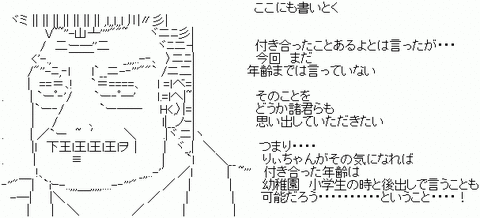 ここにも書いとく
付き合ったことあるよとは言ったが・・・
今回　まだ
年齢までは言っていない
そのことを
どうか諸君らも
思い出していただきたい
つまり・・・・
りぃちゃんがその気になれば
付き合った年齢は
幼稚園　小学生の時と後出しで言うことも
可能だろう・・・・・・・・・・ということ・・・・！